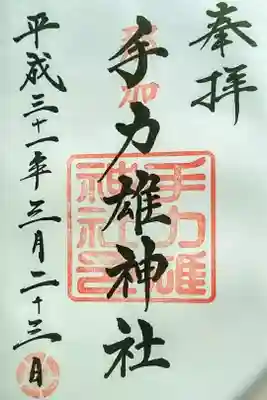 奉拝
手力雄神社
手力雄
神社
平成三十一年三月二十三日